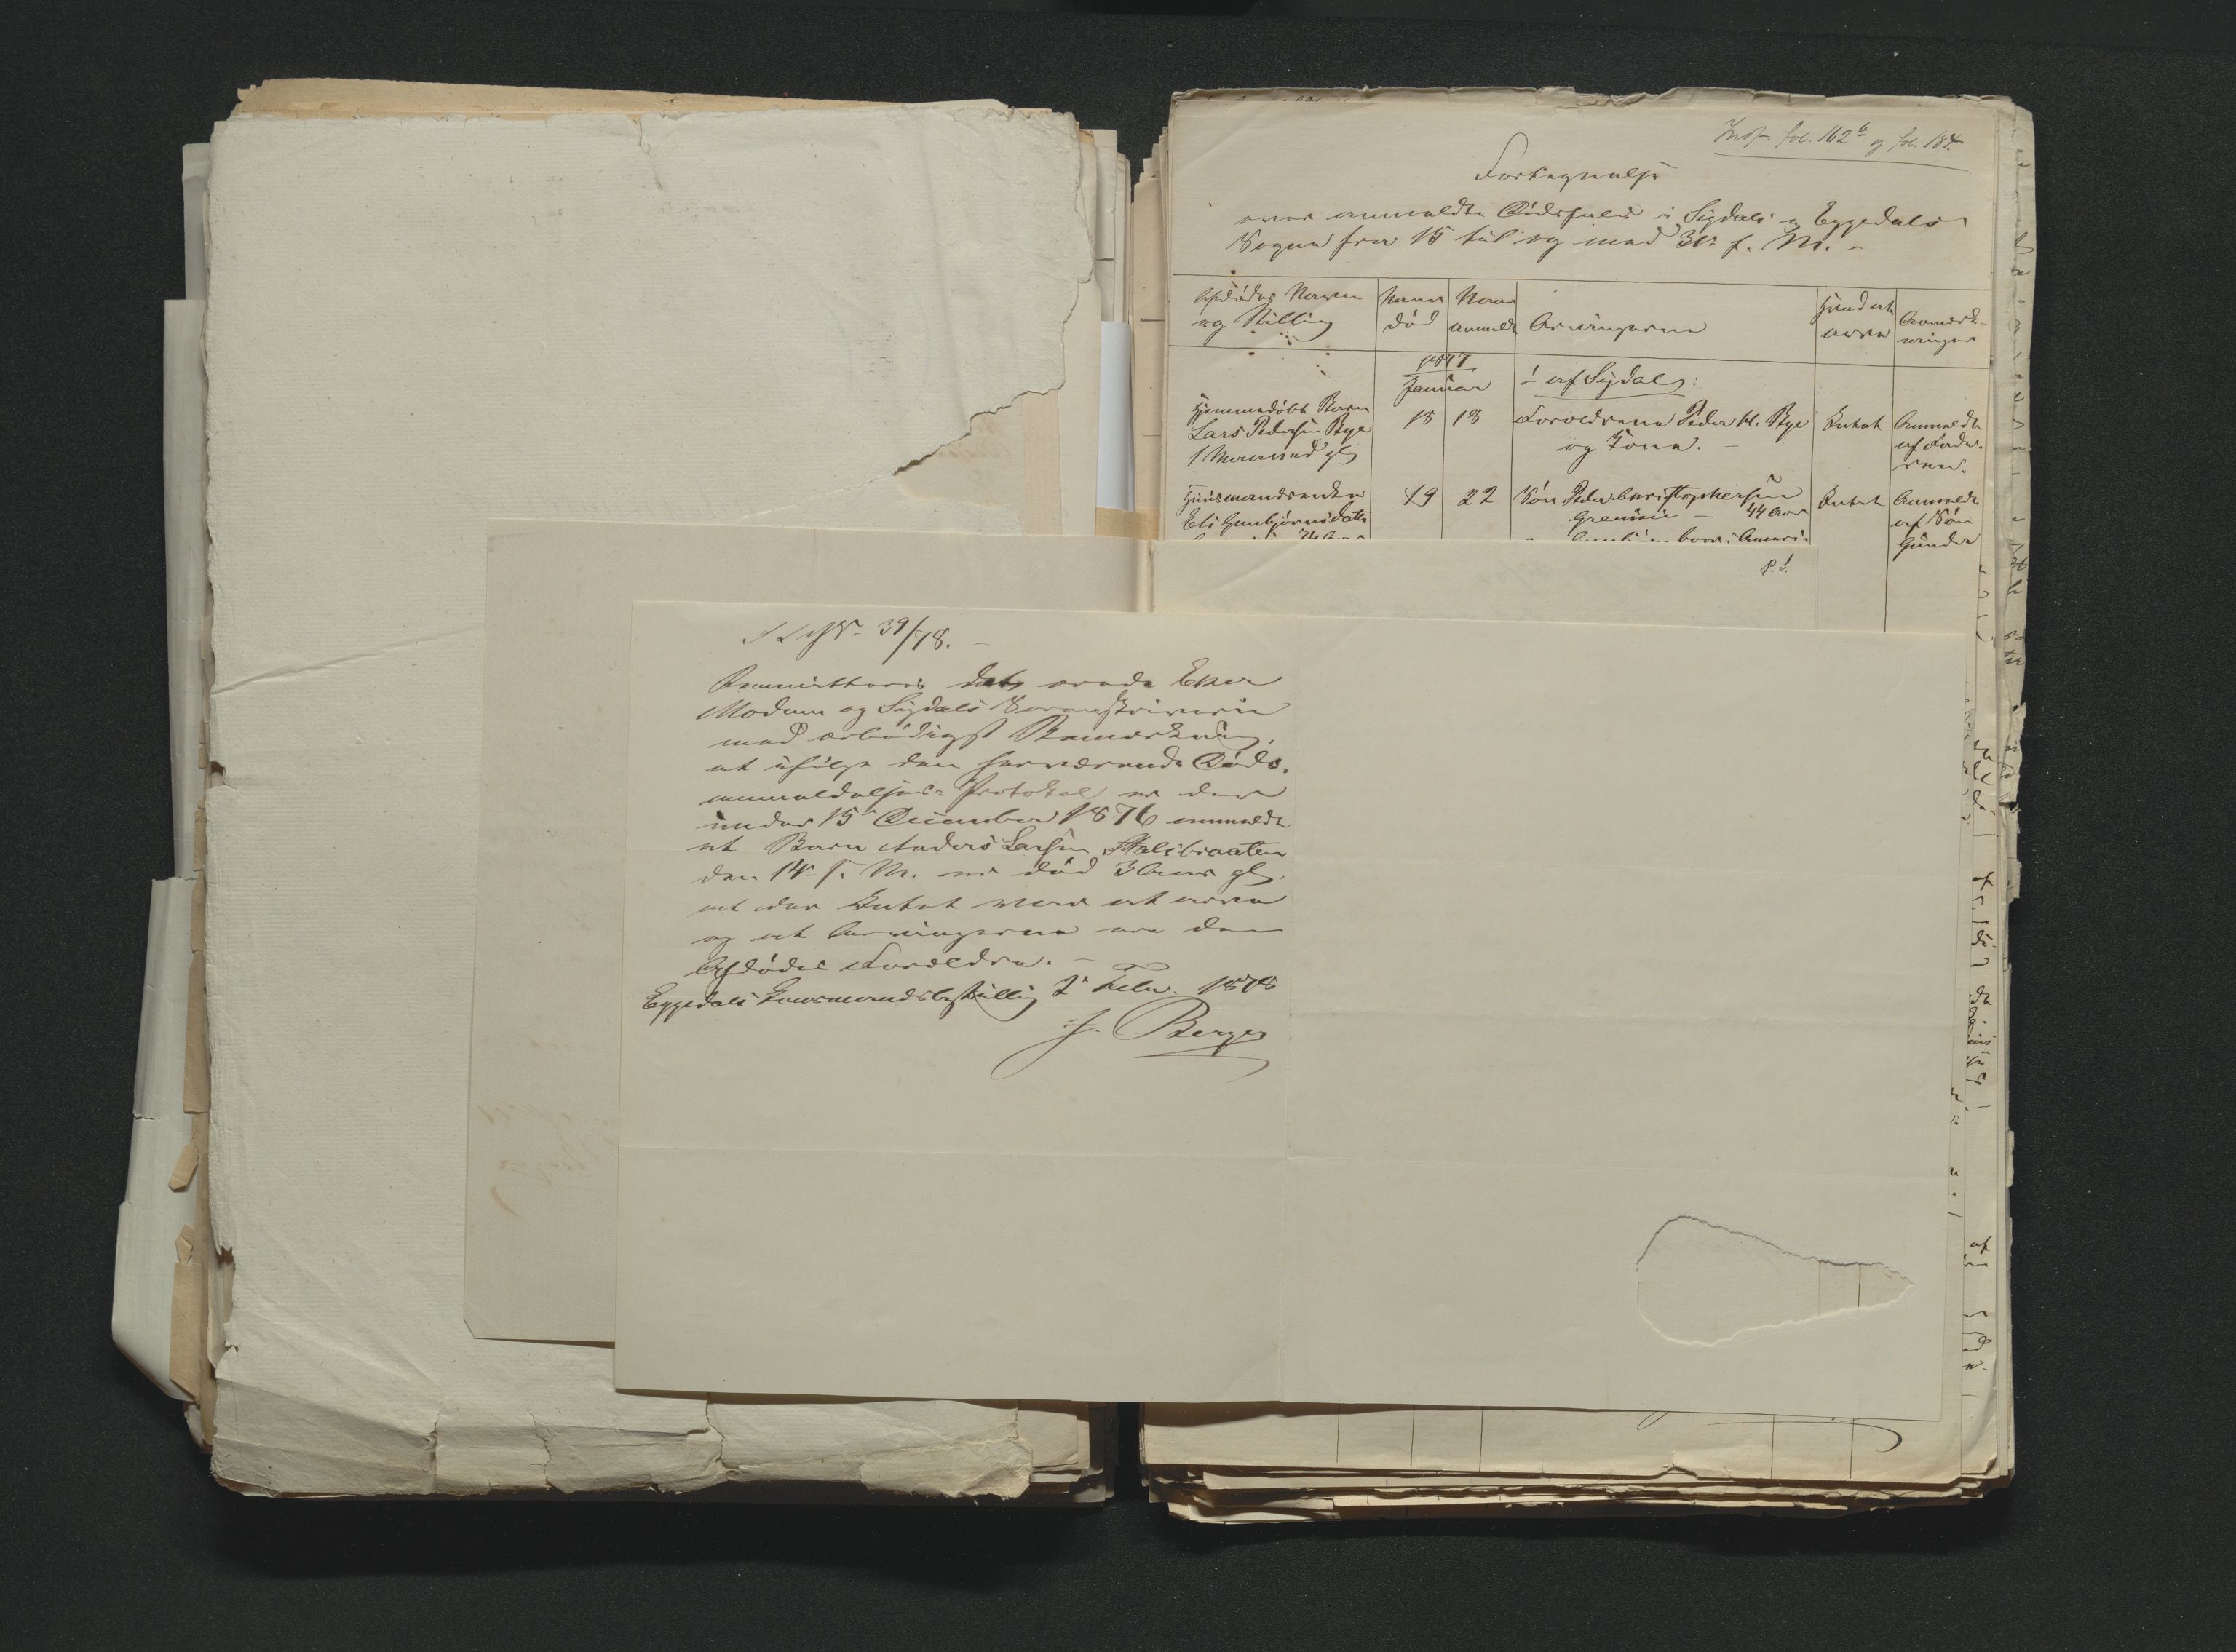 Indf. fol. 162 b og fol. 184.
Fortegnelse
over anmeldte Dødsfald i Sigdals og Eggedals
Sogne fra 15 til og med 31 f. M. -
Afdødes Navn
og Stilling
Naar
død
Naar
anmeldt
Arvingerne
Hvad at
arve
Anmærk-
ninger
Januar
1 af Sigdal:
Hjemmedøbt Barn
Lars Pedersen Bye
1 Maaned gl
18
18
Forældrene Peder H. Bye
og Tone. -
Intet
Anmeldt
af Fade-
ren.
Huusmandsenke
Eli Gunbjørnsdatter
19
22
Søn Peder Christophersen
44 Aar
Intet
Anmeldt
af Søn
Gunder
P.S.
39/78. -
Remitteres det ærede Eker
Modum og Sigdals Sorenskriverie
med ærbødigst Bemærkning,
at ifølge den herværende Døds-
anmeldelses-Protokol er der
under 15 December 1876 anmeldt
at Barn Anders Larsen
den 14 s. M. er død 3 Aar gl,
at der Intet var at arve
og at Arvingerne ere den
Afdødes Forældre. -
Eggedals Lensmandsbestilling 2 Febr. 1878
J. Berger